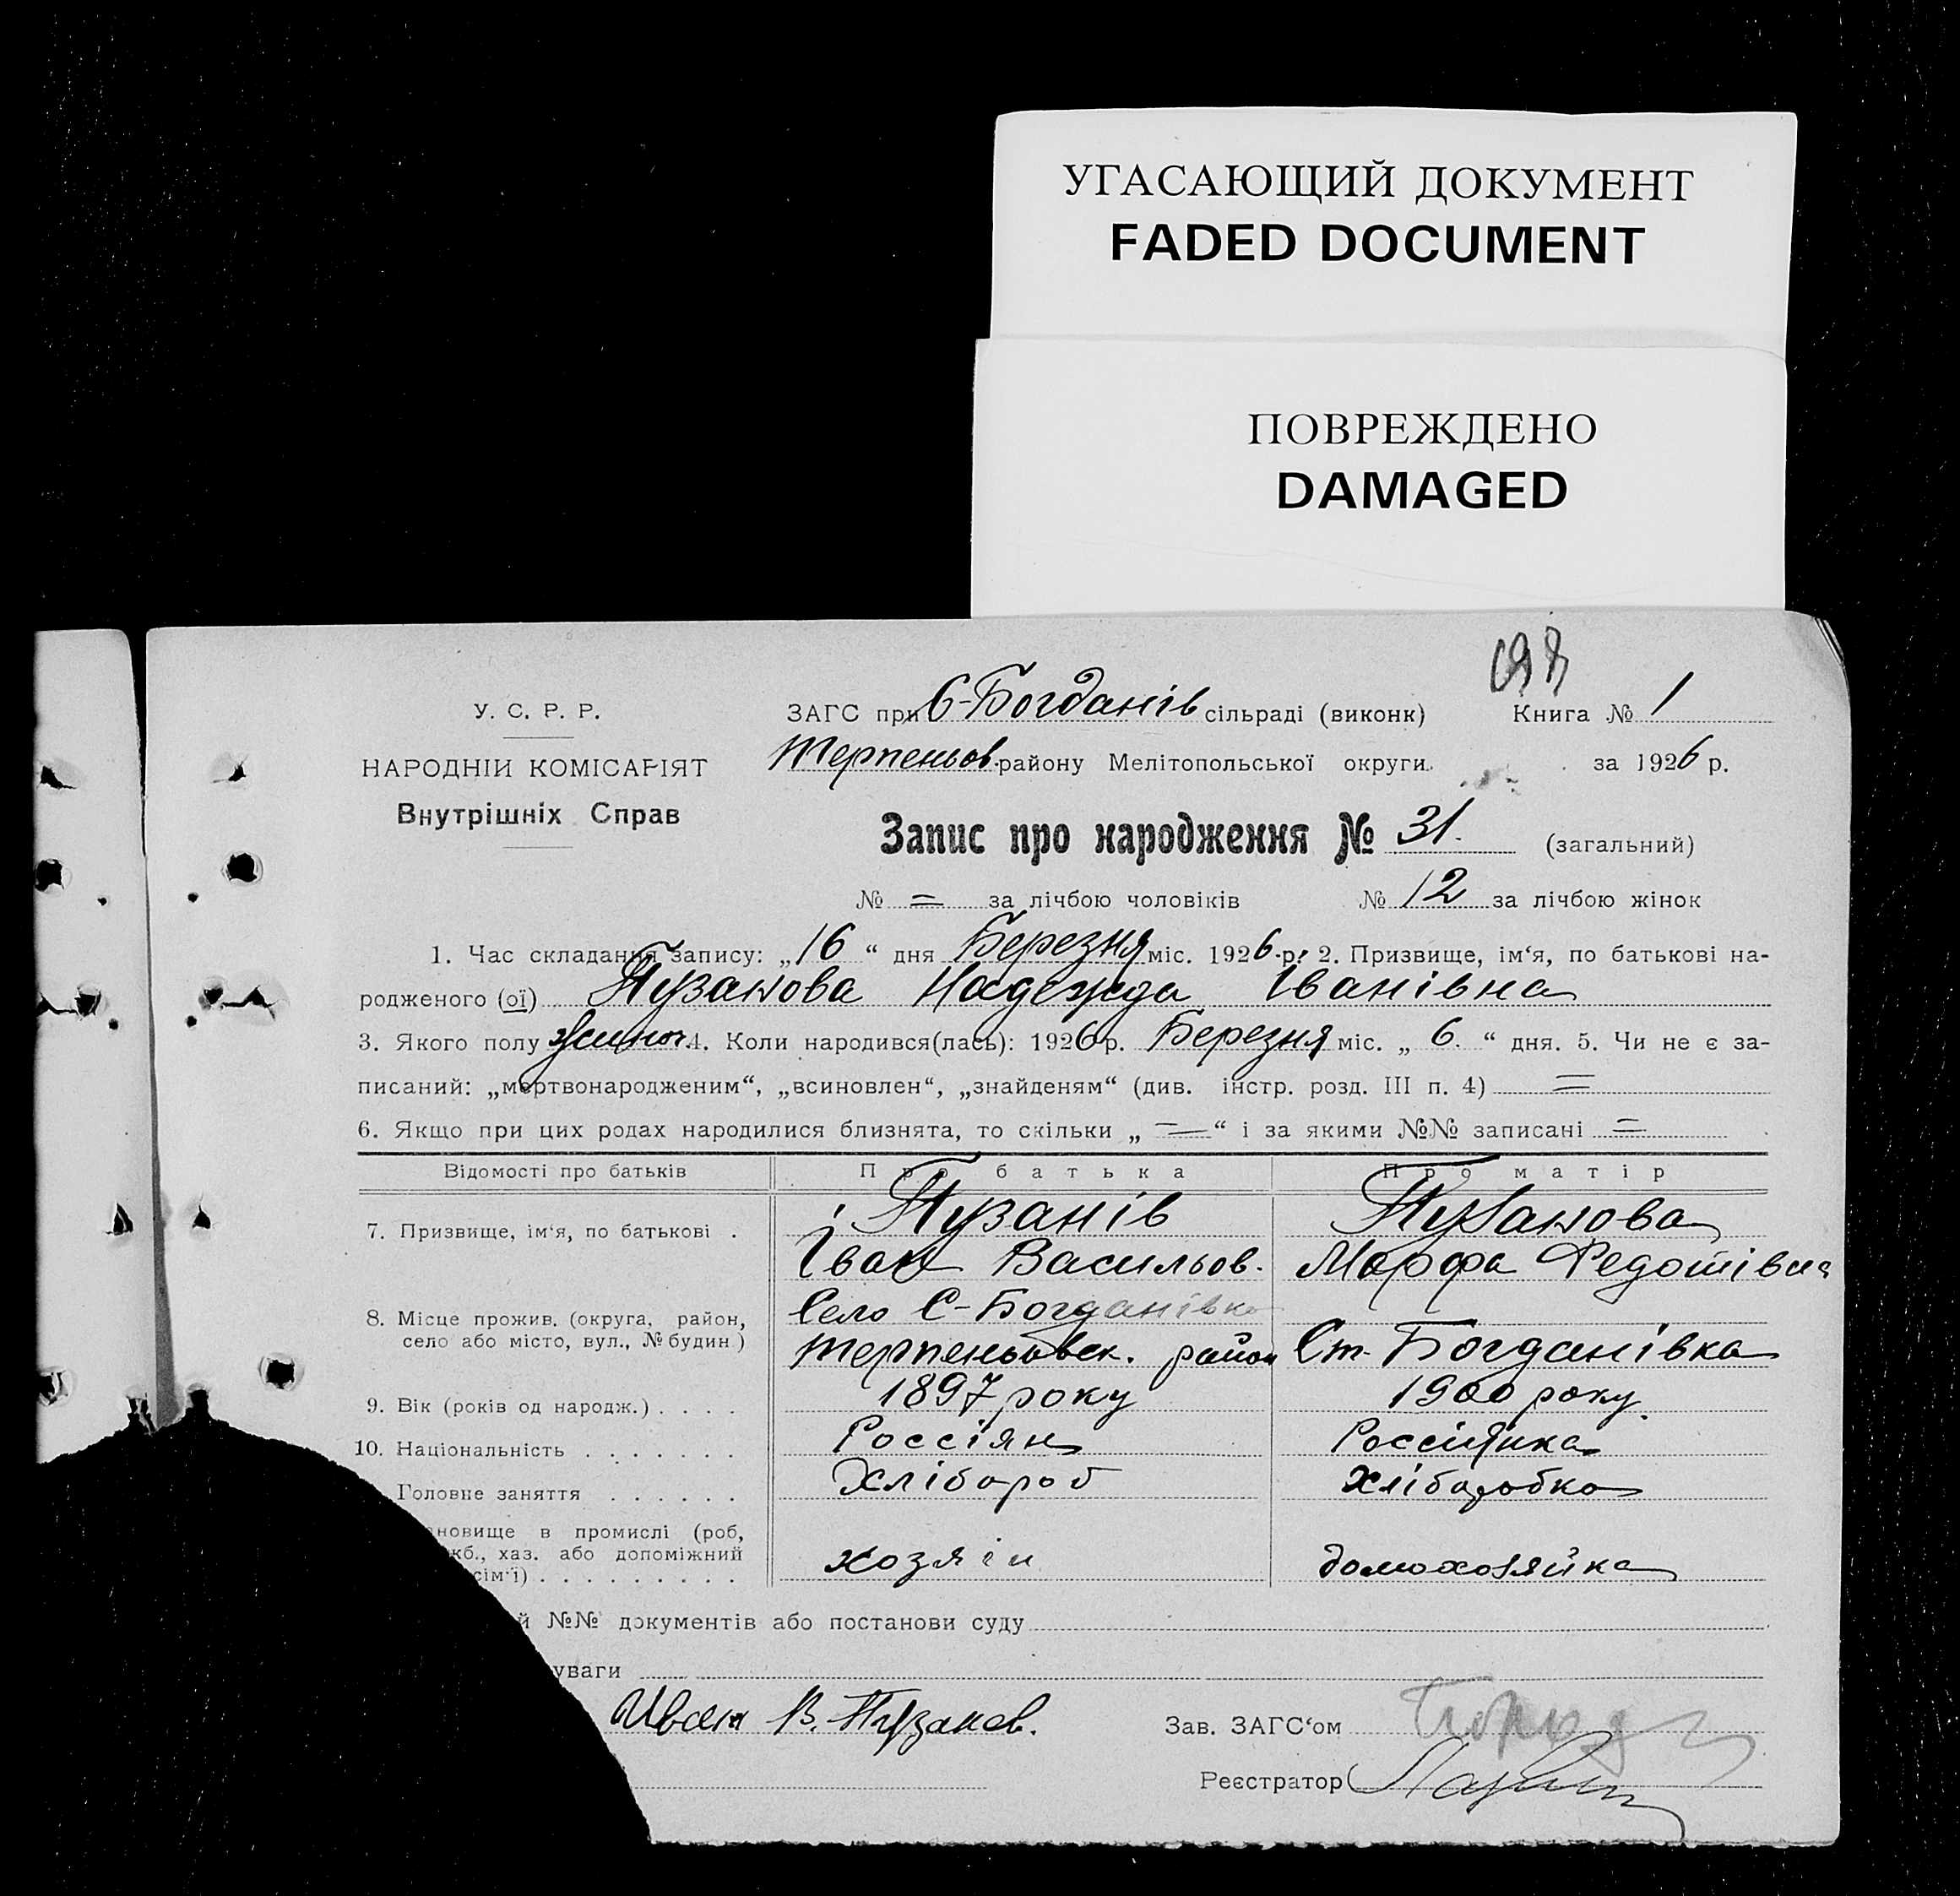 УГАСАЮЩИЙ ДОКУМЕНТ
FADED DOCUMENT
ПОВРЕЖДЕНО
DAMAGED
У. С. Р. Р.
НАРОДНІЙ КОМІСАРІЯТ
Внутрішніх Справ
ЗАГС при С-Богданів сільраді (виконк) Книга № 1
Терпеньов. району Мелітопольської округи за 1926 р.
Запис про народження № 31. (загальний)
№ = за лічбою чоловіків № 12 за лічбою жінок
1. Час складання запису: „16“ дня Березня міс. 1926 р. 2. Призвище, ім‘я, по батькові на-
родженого (ої) Пузанова Надежда Іванівна
3. Якого полу 4. Коли народився(лась): 1926 р. Березня міс. „ 6. “ дня. 5. Чи не є за-
писаний: „мертвонародженим“, „всиновлен“, „знайденям“ (див. інстр. розд. III п. 4) =
6. Якщо при цих родах народилися близнята, то скільки „ = “ і за якими №№ записані =
Відомості про батьків Про батька Про матір
7. Призвище, ім‘я, по батькові . Пузанів Пузанова
Іван Васильов. Марфа Федотівна
8. Місце прожив. (округа, район, село або місто, вул., № будин.) Село С-Богданівка
Терпеньовск. район Ст-Богданівка
9. Вік (років од народж.) . . . . 1897 року 1900 року.
10. Національність . . . . . . . Россіян Россіянка
Головне заняття . . . . . . Хлібороб Хліборобка
новище в промислі (роб,
жб., хаз. або допоміжний
сім‘ї) . . . . . . . . . хозяін домохозяйка
й №№ документів або постанови суду
уваги
Иван В. Пузанов. Зав. ЗАГС‘ом
Реєстратор